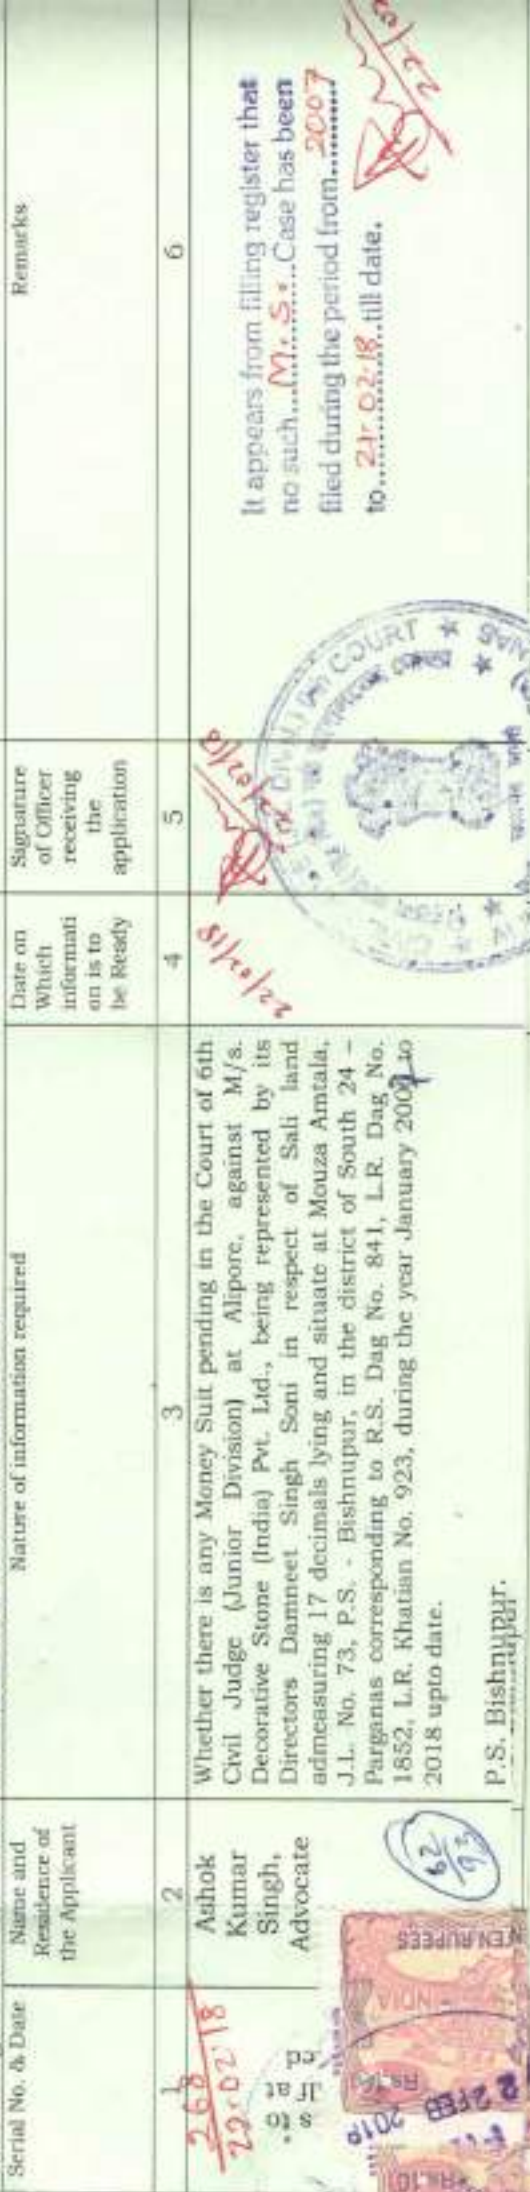 Serial No. & Date
Name and
Residence of
the Applicant
Nature of information required
Date on
Which
informati
on is to
be Ready
Signature
of Officer
receiving
the
application
Remarks
1
2
3
4
5
6
268
22.02.18
Ashok
Kumar
Singh,
Advocate
Whether there is any Money Suit pending in the Court of 6th
Civil Judge (Junior Division) at Alipore, against M/s.
Decorative Stone (India) Pvt. Ltd., being represented by its
Directors Damneet Singh Soni in respect of Sali land
admeasuring 17 decimals lying and situate at Mouza Amtala,
J.L. No. 73, P.S. - Bishnupur, in the district of South 24 –
Parganas corresponding to R.S. Dag No. 841, L.R. Dag No.
1852, L.R. Khatian No. 923, during the year January 2007 to
2018 upto date.
P.S. Bishnupur.
22/02/18
22/02/18
It appears from filling register that
no such...M.S....Case has been
filed during the period from...2007
to...21.02.18..till date.
s to
If at
ed
62/93
TEN RUPEES
INDIA
Rs.10
22 FEB 2018
COURT